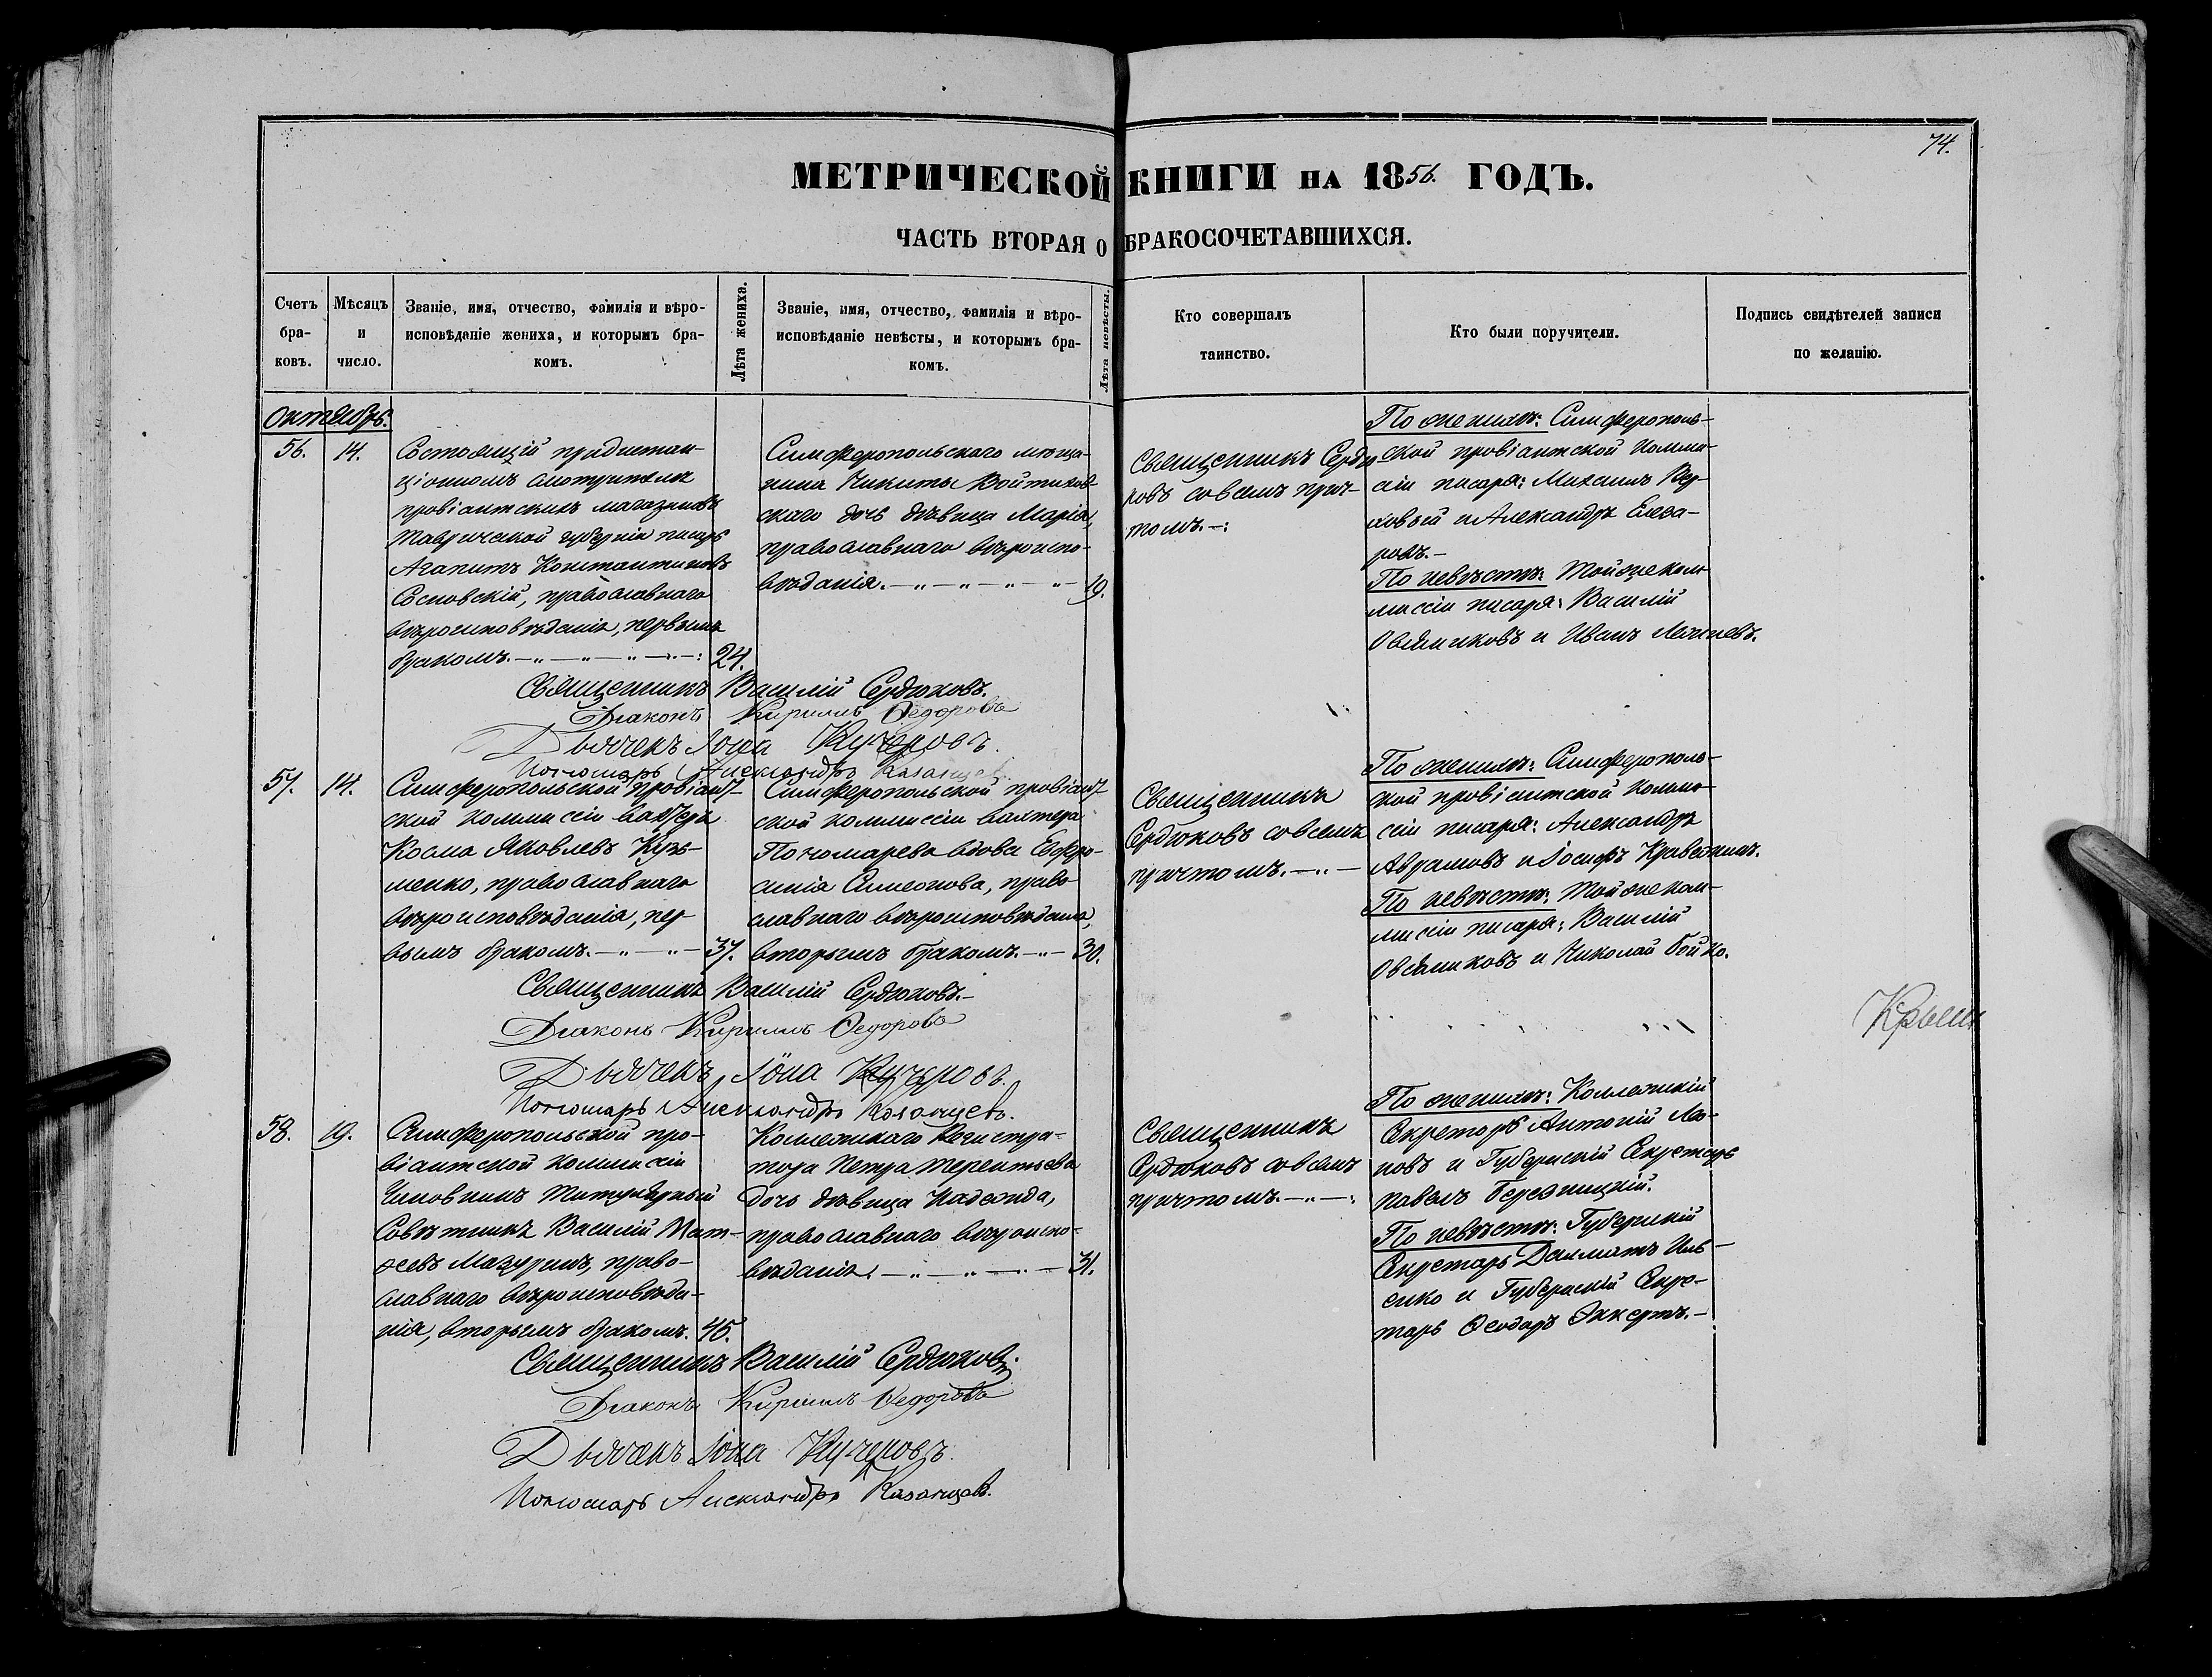 74.
МЕТРИЧЕСКОЙ КНИГИ НА 1856. ГОДЪ.
ЧАСТЬ ВТОРАЯ О БРАКОСОЧЕТАВШИХСЯ.
Счетъ бра- ковъ.
Мѣсяцъ и число.
Званіе, имя, отчество, фамилія и вѣро-
исповѣданіе жениха, и которымъ бра-
комъ.
Лѣта жениха.
Званіе, имя, отчество, фамилія и вѣро-
исповѣданіе невѣсты, и которымъ бра-
комъ.
Лѣта невѣсты.
Кто совершалъ
таинство.
Кто были поручители.
Подпись свидѣтелей записи
по желанію.
Октябрь.
56. 14.
Состоящій придистан-
ціонномъ смотрителѣ
провіантскихъ магазиновъ
Таврической губерніи писарь
Агапитъ Константиновъ
Сосновскій, православнаго
вѣроисповѣданія, первымъ
бракомъ. 24.
Симферопольскаго мѣща-
нина Никиты Войтихов-
скаго дочь дѣвица Марія,
православнаго вѣроиспо-
вѣданія. 19.
Священникъ Сердю-
ковъ совсемъ прич-
томъ.
По женихѣ: Симферополь-
ской провіантской Комми-
сіи писаря: Михаилъ Вер-
ховый и Александръ Елеза-
ровъ.
По невѣстѣ: Тойже Ком-
миссіи писаря: Василій
Овсяниковъ и Иванъ
Священникъ Василій Сердюковъ.
Діаконъ Кириллъ Ѳедоровъ
Дьячекъ Іона Кучеровъ.
Пономарь Александръ Казанцевъ.
57. 14.
Симферопольской провіант-
ской коммиссіи вахтеръ
Косма Яковлевъ Кузь-
менко, православнаго
вѣроисповѣданія, пер-
вымъ бракомъ. 37.
Симферопольской провіант-
ской коммиссіи вахтера
Пономарева вдова Евфро-
синія Симеонова, право-
славнаго вѣроисповѣданія,
вторымъ бракомъ. 30.
Священникъ
Сердюковъ совсемъ
причтомъ.
По женихѣ: Симферополь-
ской провіантской Комми-
сіи писаря: Александръ
Аврамовъ и Іосифъ
По невѣстѣ: Тойже ком-
мисіи писаря: Василій
Овсяниковъ и Николай Бойко.
Священникъ Василій Сердюковъ.
Діаконъ Кириллъ Ѳедоровъ
Дьячекъ Іона Кучеровъ.
Пономарь Александръ Казанцевъ.
58. 19.
Симферопольской про-
віантской Коммиссіи
Чиновникъ Титулярный
Совѣтникъ Василій Мат-
ѳеевъ Мазуринъ, право-
славнаго вѣроисповѣда-
нія, вторымъ бракомъ. 45.
Коллежскаго Регистра-
тора Петра Терентьева
дочь дѣвица Надежда,
православнаго вѣроиспо-
вѣданія. 31.
Священникъ
Сердюковъ совсемъ
причтомъ.
По женихѣ: Коллежскій
Секретарь Антоній Мо-
новъ и Губернскій Секретарь
Павелъ Березницкій.
По невѣстѣ: Губернскій
Секретарь Далматъ Иль-
енко и Губернскій Секре-
тарь Ѳеодоръ Эккертъ.
Священникъ Василій Сердюковъ.
Діаконъ Кириллъ Ѳедоровъ
Дьячекъ Іона Кучеровъ.
Пономарь Александръ Казанцевъ.